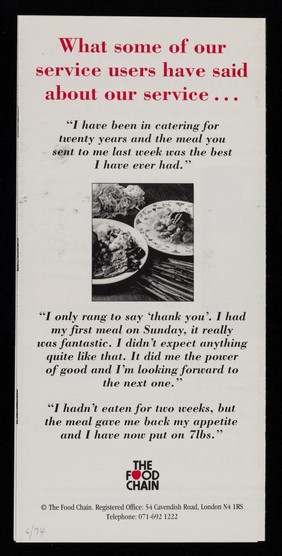 What some of our
service users have said
about our service . . .
“I have been in catering for
twenty years and the meal you
sent to me last week was the best
I have ever had.”
“I only rang to say ‘thank you’. I had
my first meal on Sunday, it really
was fantastic. I didn’t expect anything
quite like that. It did me the power
of good and I’m looking forward to
the next one.”
“I hadn’t eaten for two weeks, but
the meal gave me back my appetite
and I have now put on 7lbs.”
THE
FOOD
CHAIN
© The Food Chain. Registered Office: 54 Cavendish Road, London N4 1RS
Telephone: 071-692 1222